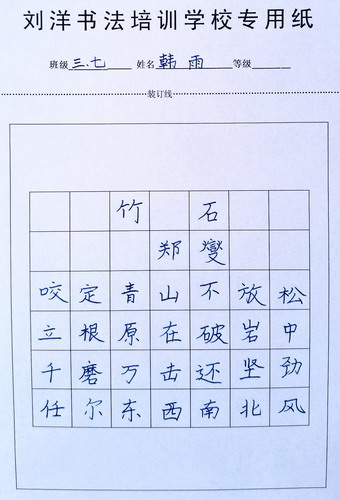 刘洋书法培训学校专用纸
班级 三.七 姓名 韩雨 等级
装订线
竹石
郑燮
咬定青山不放松
立根原在破岩中
千磨万击还坚劲
任尔东西南北风